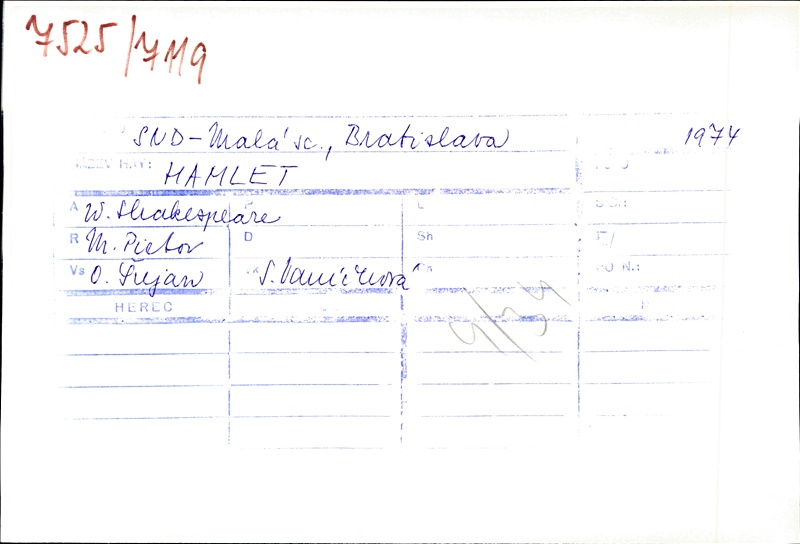 7525/7119
SND - Malá sc., Bratislava 1974
NÁZEV HRY: HAMLET
A W. Shakespeare P L
R M. Pietor D Sh
Vs O. Šujan S. Vaníčková
HEREC